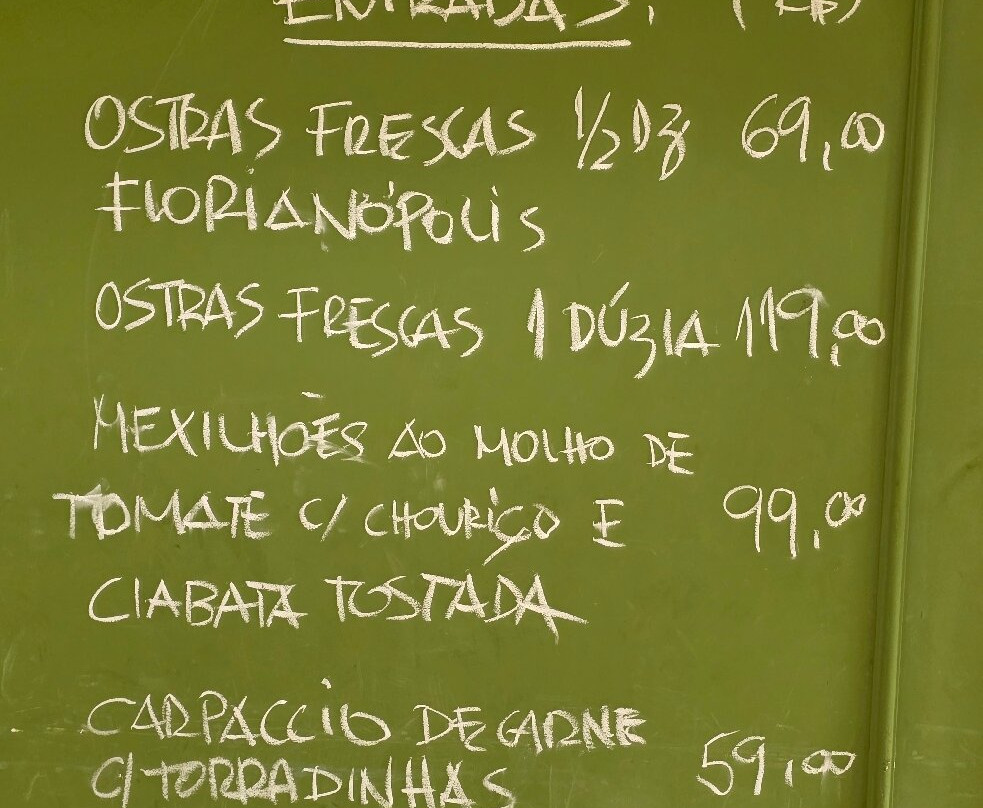 ENTRADAS. (R$)
OSTRAS FRESCAS 1/2 DZ 69,00
FLORIANÓPOLIS
OSTRAS FRESCAS 1 DÚZIA 119,00
MEXILHÕES AO MOLHO DE
TOMATE C/ CHOURIÇO E 99,00
CIABATA TOSTADA
CARPACCIO DE CARNE
C/ TORRADINHAS 59,00